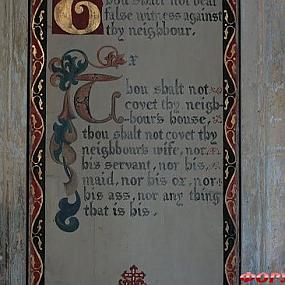 Thou shalt not bear
false witness against
thy neighbour.
x
Thou shalt not
covet thy neigh-
bour's house,
thou shalt not covet thy
neighbour's wife, nor
his servant, nor his
maid, nor his ox, nor
his ass, nor any thing
that is his.